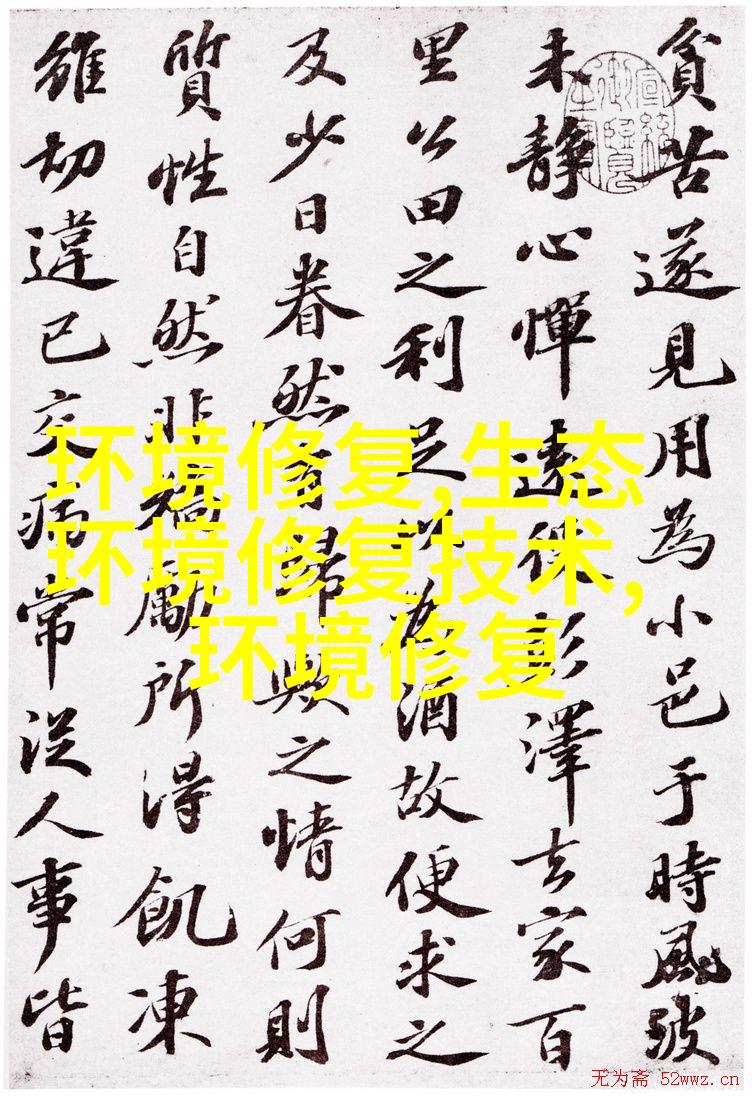 貧苦遂見用為小邑于時風波
未靜心憚遠役彭澤去家百
里公田之利足以為酒故便求之
及少日眷然有歸歟之情何則
質性自然非矯勵所得飢凍
雖切違己交病常從人事皆
环境修复,生态
环境修复技术,
环境修复
无为斋 52wwz.cn